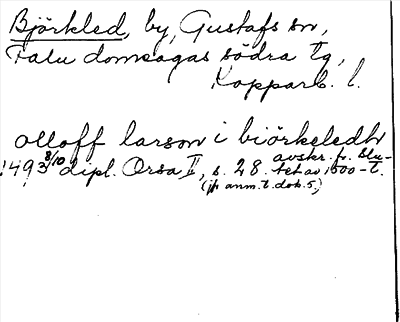 Björkled, by, Gustafs sn,
Falu domsagas södra tg,
Kopparb. l.
olloff larson i biörkeledh
1493 8/10 dipl. Orsa II, s. 28. avskr. fr. slu-
tet av 1500-t.
(jfr anm. t. dok. 5)